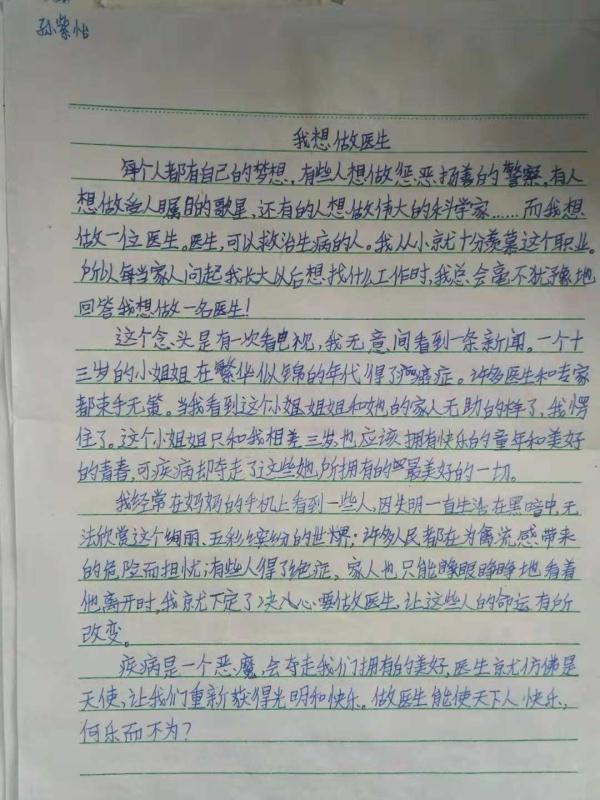 孙紫怡
我想做医生
每个人都有自己的梦想,有些人想做惩恶扬善的警察,有人
想做受人瞩目的歌星,还有的人想做伟大的科学家……而我想
做一位医生。医生,可以救治生病的人。我从小就十分羡慕这个职业。
所以每当家人问起我长大以后想找什么工作时,我总会毫不犹豫地
回答我想做一名医生!
这个念头是有一次看电视,我无意间看到一条新闻。一个十
三岁的小姐姐在繁华似锦的年代得了癌症。许多医生和专家
都束手无策。当我看到这个小姐姐和她的家人无助的样子,我愣
住了。这个小姐姐只和我相差三岁,也应该拥有快乐的童年和美好
的青春,可疾病却夺走了这些她所拥有的最美好的一切。
我经常在妈妈的手机上看到一些人,因失明一直生活在黑暗中,无
法欣赏这个绚丽、五彩缤纷的世界;许多人民都在为禽流感带来
的危险而担忧;有些人得了绝症,家人也只能睁眼睁睁地看着
他离开时,我就下定了决心要做医生,让这些人的命运有所
改变。
疾病是一个恶魔,会夺走我们拥有的美好,医生就仿佛是
天使,让我们重新获得光明和快乐。做医生能使天下人快乐,
何乐而不为?